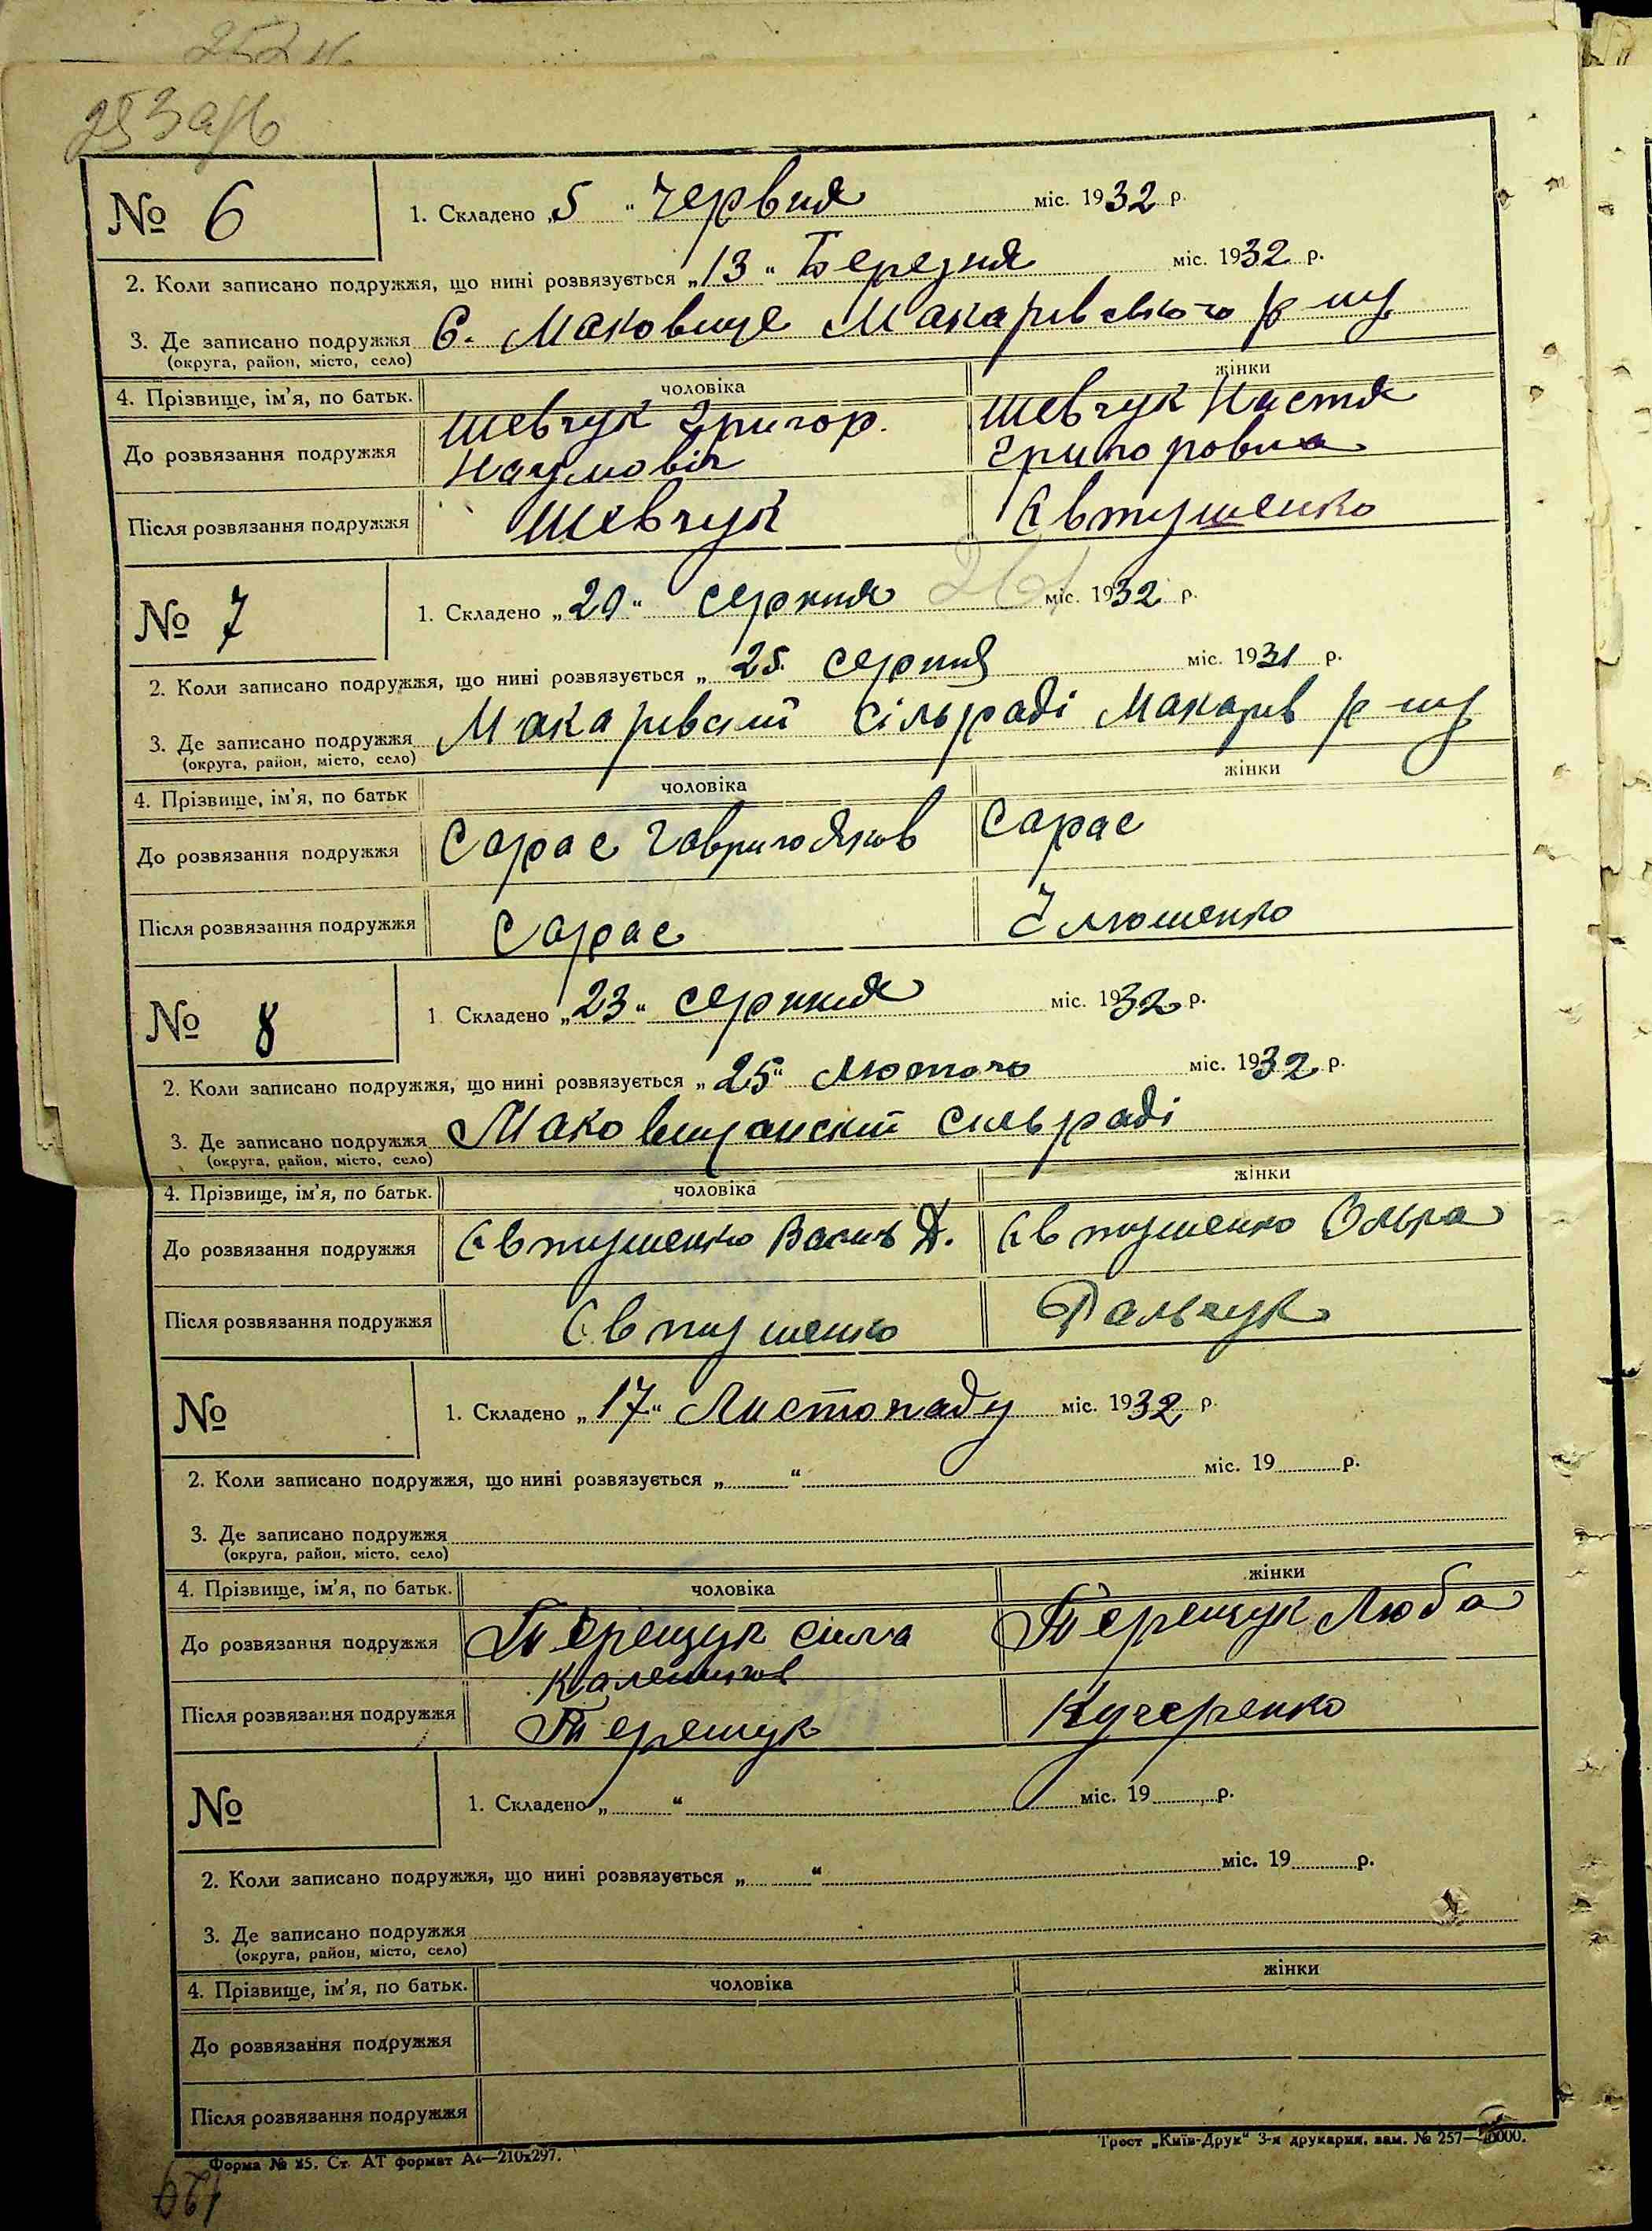 253 а/б
№ 6
1. Складено „5“ червня міс. 1932 р.
2. Коли записано подружжя, що нині розвязується „13“ Березня міс. 1932 р.
3. Де записано подружжя С. Маковище Макарівського р-ну
(округа, район, місто, село)
4. Прізвище, ім'я, по батьк. чоловіка жінки
До розвязання подружжя Шевчук Григор. Шевчук Настя
Наумовіч Григоровна
Після розвязання подружжя Шевчук Євтушенко
№ 7
1. Складено „20“ серпня міс. 1932 р.
2. Коли записано подружжя, що нині розвязується „25. серпня міс. 1931 р.
3. Де записано подружжя Макарівский сільраді Макарів р-ну
(округа, район, місто, село)
4. Прізвище, ім'я, по батьк чоловіка жінки
До розвязання подружжя Сарас Сарас
Після розвязання подружжя Сарас Ілюшенко
№ 8
1 Складено „23“ серпня міс. 1932 р.
2. Коли записано подружжя, що нині розвязується „25“ Лютого міс. 1932 р.
3. Де записано подружжя Маковищанский сильраді
(округа, район, місто, село)
4. Прізвище, ім'я, по батьк. чоловіка жінки
До розвязання подружжя Євтушенко Василь Д. Євтушенко Ольга
Після розвязання подружжя Євтушенко Пальчук
№
1. Складено „17“ Листопаду міс. 1932 р.
2. Коли записано подружжя, що нині розвязується „ “ міс. 19 р.
3. Де записано подружжя
(округа, район, місто, село)
4. Прізвище, ім'я, по батьк. чоловіка жінки
До розвязання подружжя Терещук Сила Терещук Люба
Після розвязання подружжя Терещук Кучеренко
№
1. Складено „ “ міс. 19 р.
2. Коли записано подружжя, що нині розвязується „ “ міс. 19 р.
3. Де записано подружжя
(округа, район, місто, село)
4. Прізвище, ім'я, по батьк. чоловіка жінки
До розвязання подружжя
Після розвязання подружжя
Форма № 25. Ст. АТ формат А4—210х297. Трест „Київ-Друк“ 3-я друкарня, зам. № 257—